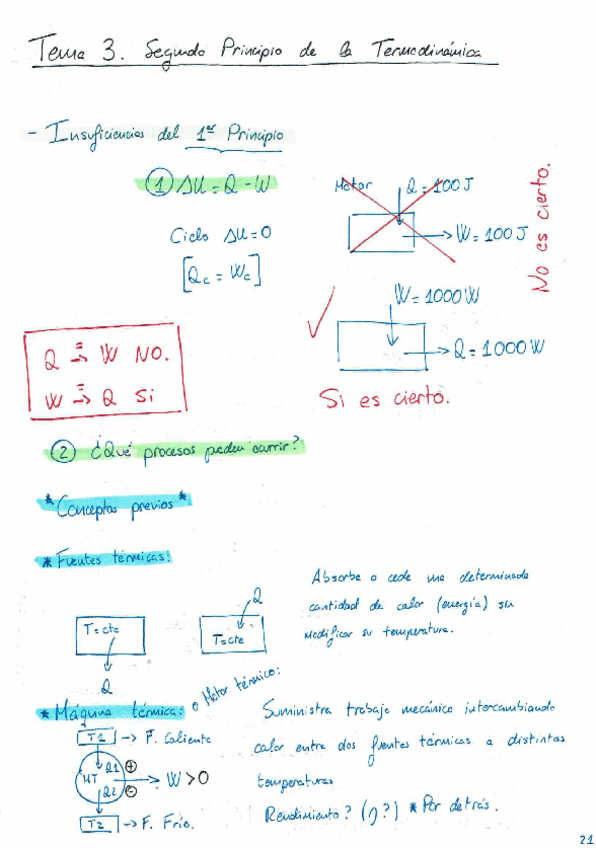 Tema 3. Segundo Principio de la Termodinámica
- Insuficiencias del 1er Principio
1 ΔU = Q - W
Ciclo ΔU = 0
[Qc = Wc]
Motor
Q = 100 J
W = 100 J
No es cierto.
W = 1000 W
Q = 1000 W
Si es cierto.
Q =→ W NO.
W =→ Q Si
2 ¿Qué procesos pueden ocurrir?
*Conceptos previos*
* Fuentes térmicas:
T = cte
Q
Q
T = cte
Absorbe o cede una determinada
cantidad de calor (energía) sin
modificar su temperatura.
* Máquina térmica: o Motor térmico:
T1 -> F. Caliente
Q1 +
MT
W > 0
Q2 -
T2 -> F. Frío.
Suministra trabajo mecánico intercambiando
calor entre dos fuentes térmicas a distintas
temperaturas
Rendimiento? (η?) * Por detrás.
21